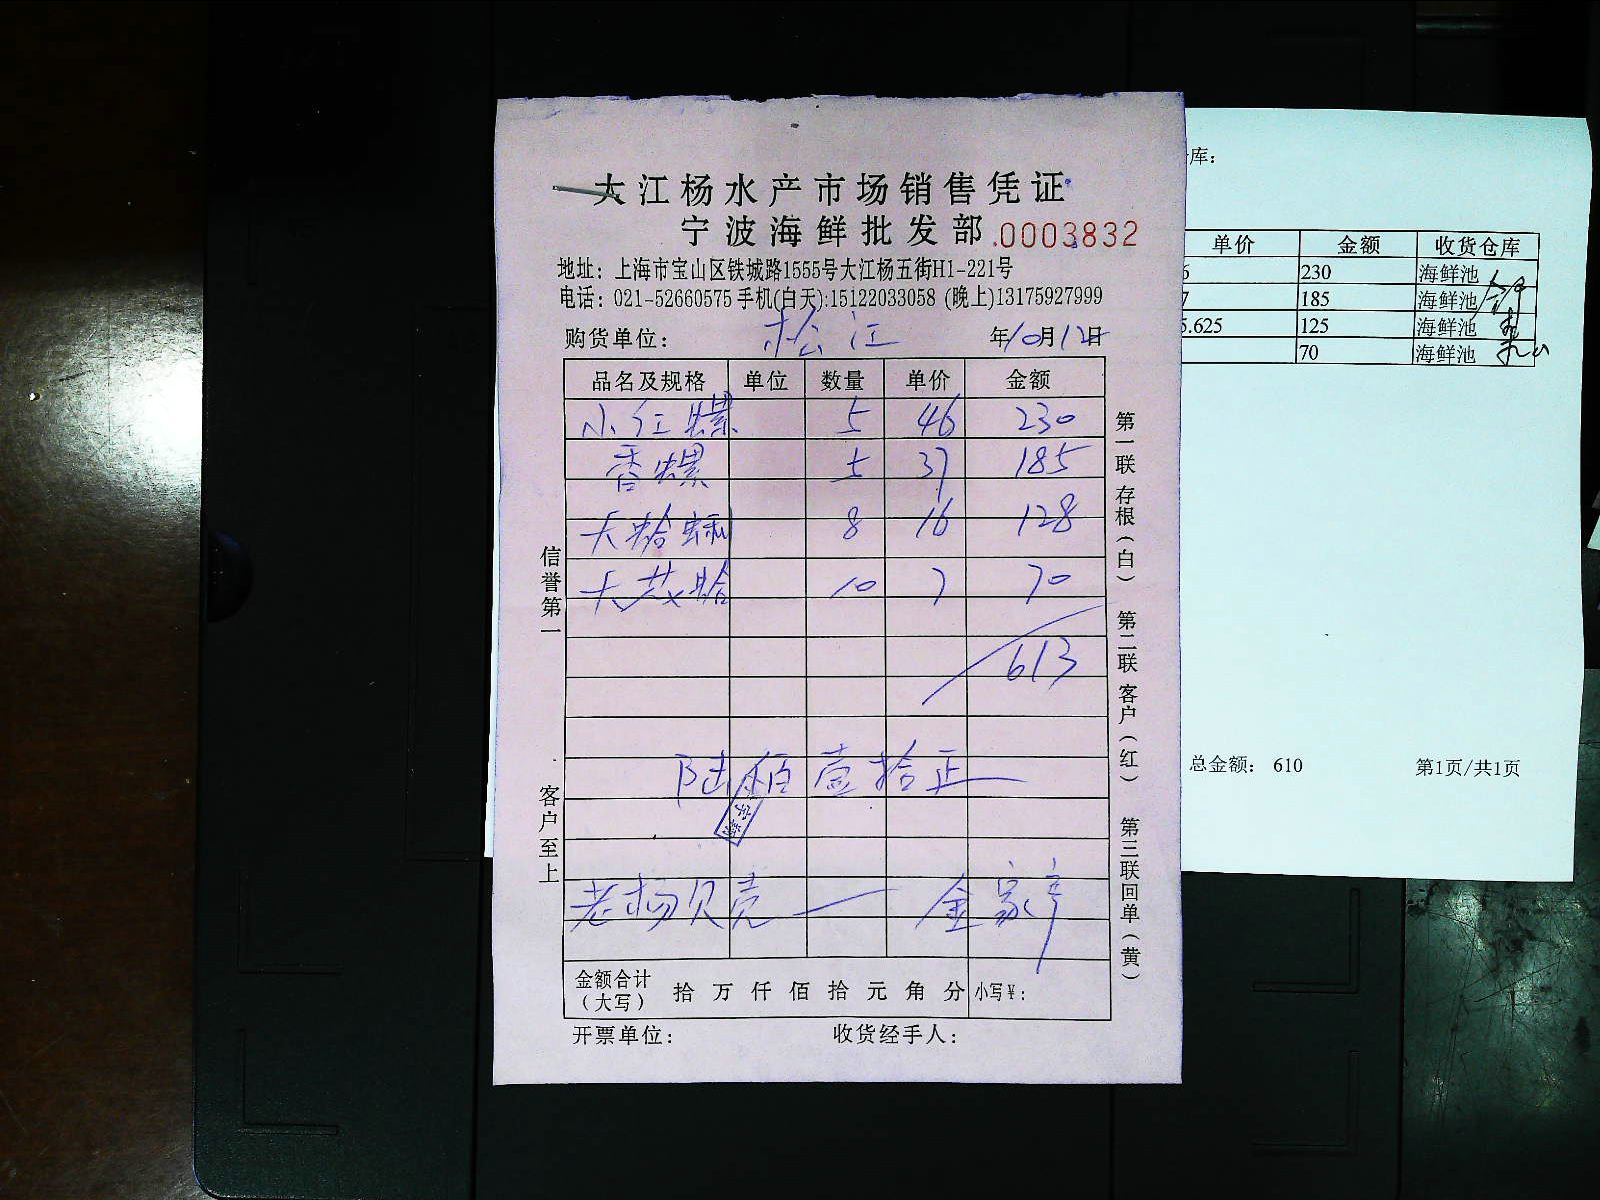 大江杨水产市场销售凭证
宁波海鲜批发部 .0003832
地址：上海市宝山区铁城路1555号大江杨五街H1-221号
电话：021-52660575 手机(白天):15122033058 (晚上)13175927999
购货单位： 松江 年10月12日
品名及规格 单位 数量 单价 金额
小红螺 5 46 230
香螺 5 37 185
大蛤蜊 8 16 128
大芪蛤 10 7 70
613
陆佰壹拾正
老杨贝壳 — 金家
金额合计（大写） 拾 万 仟 佰 拾 元 角 分 小写¥：
开票单位： 收货经手人：
信誉第一 客户至上
第一联存根（白） 第二联客户（红） 第三联回单（黄）
库：
单价 金额 收货仓库
6 230 海鲜池
7 185 海鲜池
5.625 125 海鲜池
70 海鲜池
总金额： 610 第1页/共1页